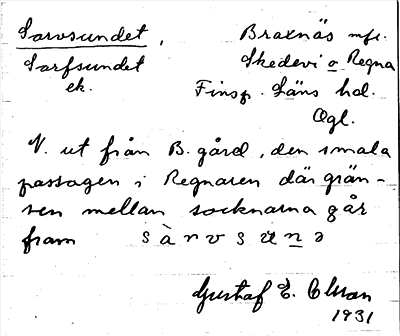 Sarvsundet, Braxnäs mfl.
Sarfsundet Skedevi o Regna
ek. Finsp. Läns hd.
Ögl.
N. ut från B. gård, den smala
passagen i Regnaren där grän-
sen mellan socknarna går
fram sàrvsu̇nə
Gustaf E. Olsson
1931